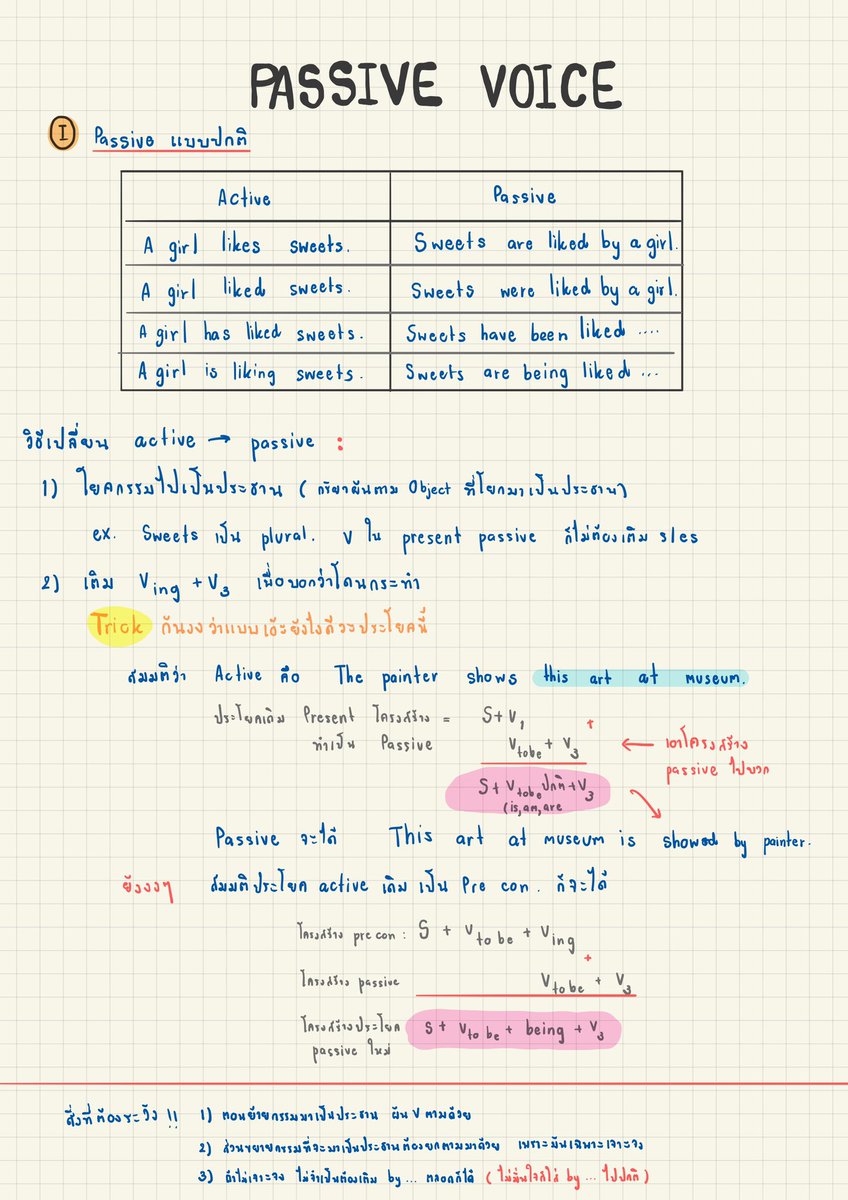 PASSIVE VOICE
I Passive แบบปกติ
Active Passive
A girl likes sweets. Sweets are liked by a girl.
A girl liked sweets. Sweets were liked by a girl.
A girl has liked sweets. Sweets have been liked ....
A girl is liking sweets. Sweets are being liked ...
วิธีเปลี่ยน active → passive :
1) โยคกรรมไปเป็นประธาน ( กริยาผันตาม Object ที่โยกมาเป็นประธาน)
ex. Sweets เป็น plural. V ใน present passive ก็ไม่ต้องเติม s/es
2) เติม Ving + V3 เพื่อบอกว่าโดนกระทำ
Trick กันงงว่าแบบเอ๊ะยังไงดีวะประโยคนี้
สมมติว่า Active คือ The painter shows this art at museum.
ประโยคเดิม Present โครงสร้าง = S+V1 +
ทำเป็น Passive Vtobe + V3 ← เอาโครงสร้าง
passive ไปบวก
S + Vtobe ปกติ + V3
(is,am,are
Passive จะได้ This art at museum is showed by painter.
ยังงงๆ สมมติประโยค active เดิม เป็น Pre con. ก็จะได้
โครงสร้าง pre con : S + Vto be + Ving
+
โครงสร้าง passive Vto be + V3
โครงสร้างประโยค S + Vto be + being + V3
passive ใหม่
สิ่งที่ต้องระวัง !! 1) ตอนย้ายกรรมมาเป็นประธาน ผัน V ตามด้วย
2) ส่วนขยายกรรมที่จะมาเป็นประธานต้องยกตามมาด้วย เพราะมันเฉพาะเจาะจง
3) ถ้าไม่เจาะจง ไม่จำเป็นต้องเติม by ... ตลอดก็ได้ ( ไม่มั่นใจก็ใส่ by ... ไปปกติ )